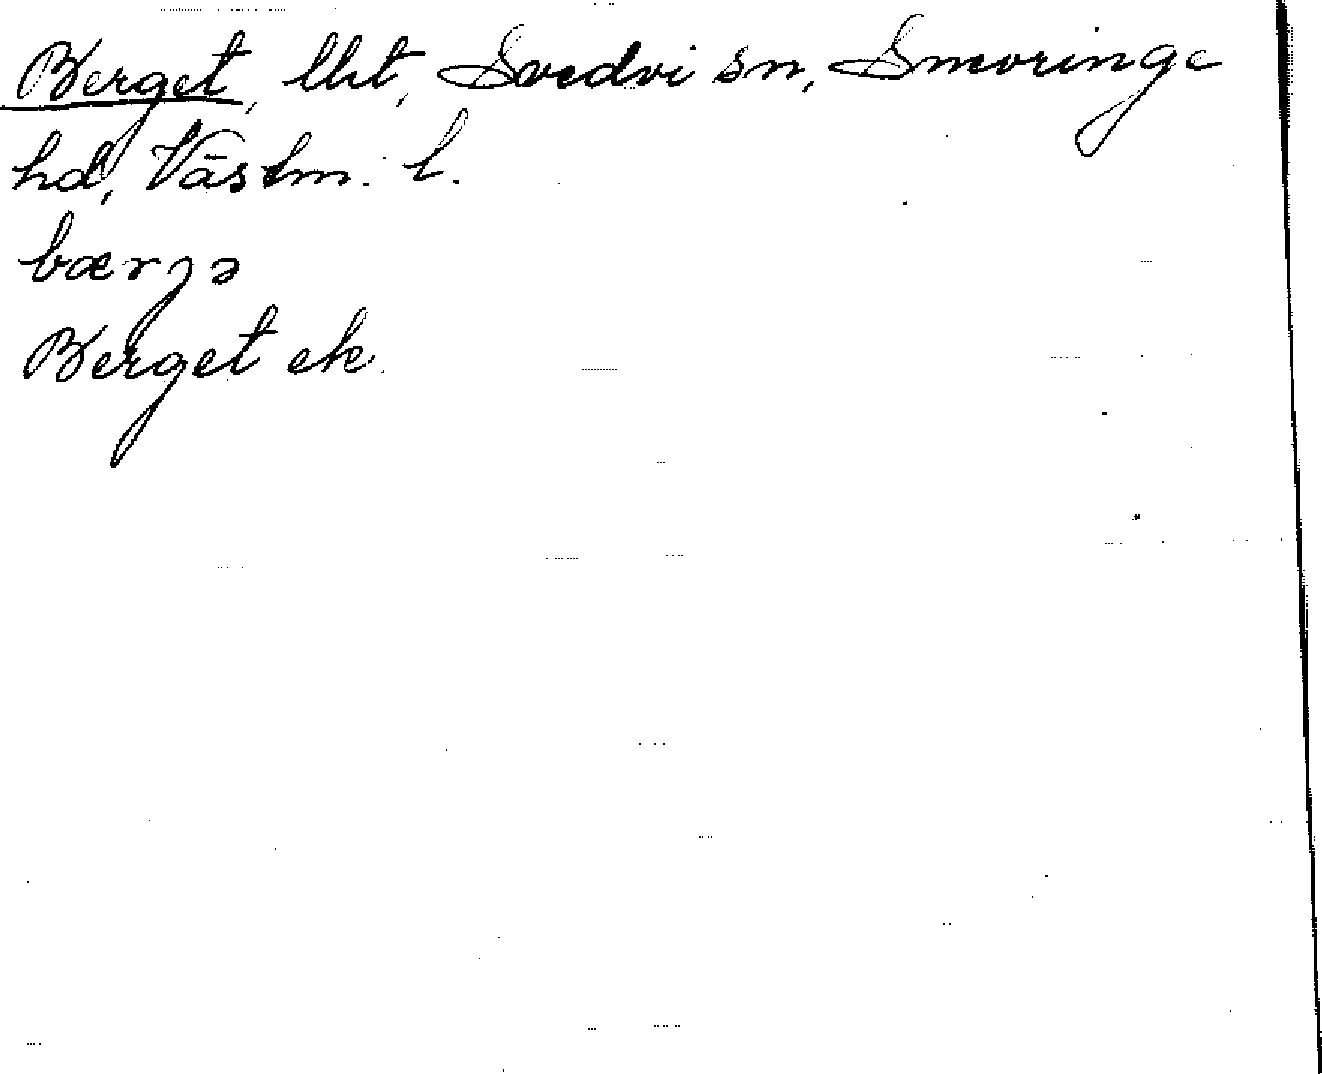 Berget, lht, Svedvi sn, Snevringe
hd, Västm. l.
bærjə
Berget ek.